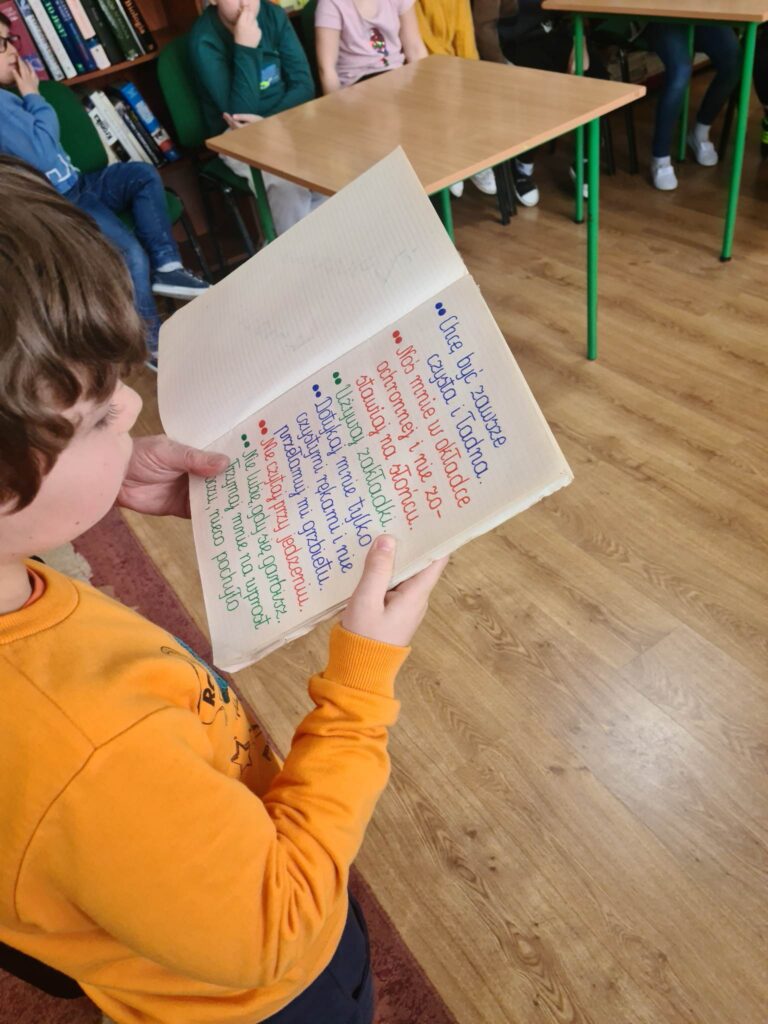 •• Chcę być zawsze
czysta i ładna.
•• Noś mnie w okładce
ochronnej i nie zo-
stawiaj na słońcu.
•• Używaj zakładki.
•• Dotykaj mnie tylko
czystymi rękami i nie
przełamuj mi grzbietu.
•• Nie czytaj przy jedzeniu.
•• Nie lubię, gdy się garbisz.
Trzymaj mnie na wprost
oczu, nieco pochyło